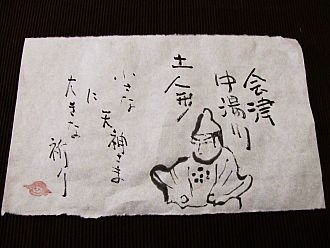 会津
中湯川
土人形
小さな
天神さま
に
大きな
祈り